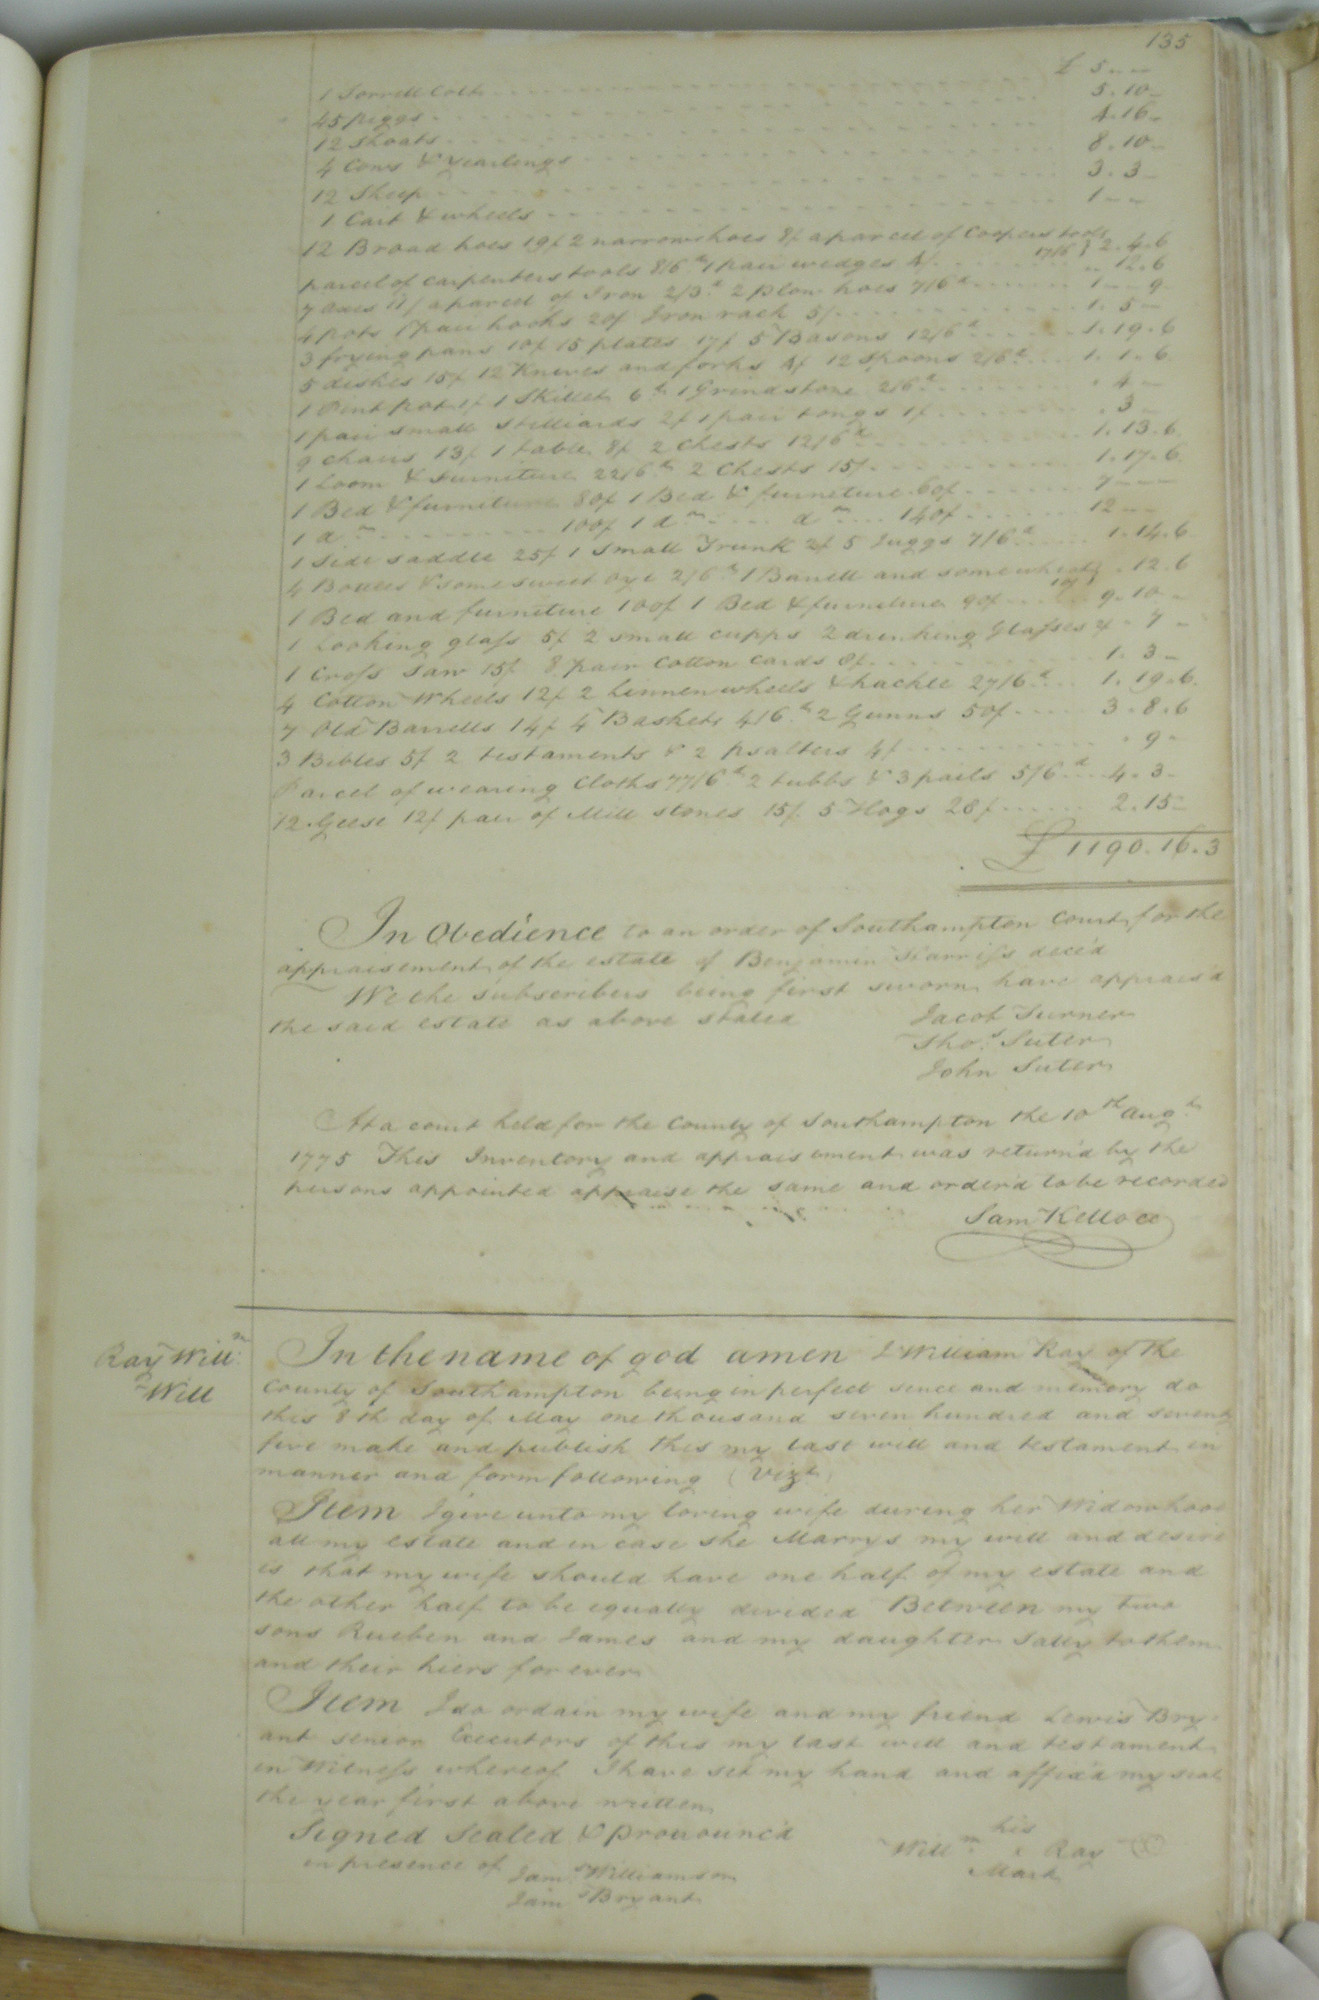 135
1 Sorrell Colt £ 5 - -
45 piggs 5. 10 -
12 Shoats 4. 16 -
4 Cows & yearlings 8. 10 -
12 Sheep 3. 3 -
1 Cart & wheels 1 - -
12 Broad hoes 19/ 2 narrow hoes 8/ a parcel of Coopers tools
parcel of carpenters tools 8/6.d 1 pair wedges 4/. 17/6 } 2. 4. 6
7 axes 11/ a parcel of Iron 2/3.d 2 plow hoes 7/6d .. 12. 6
4 pots 1 pair hooks 20/ Iron rack 5/ 1 - 9 -
3 frying pans 10/ 15 plates 17/ 5 Basons 12/6d 1. 5 -
5 dishes 15/ 12 Knives and forks 4/ 12 Spoons 2/6d 1. 19. 6
1 Pint pot 1/ 1 Skillet 6d 1 Grindstone 2/6d 1. 1. 6
1 pair small stilliards 2/ 1 pair tongs 1/ . 4 -
9 chairs 13/ 1 table 8/ 2 Chests 12/6d . 3 -
1 Loom & furniture 22/6d 2 Chests 15/. 1. 13. 6
1 Bed & furniture 80/ 1 Bed & furneture 60/ 1. 17. 6
1 do 100/ 1 do do 140/ 7 - - -
1 side saddle 25/ 1 small Trunk 2/ 5 Juggs 7/6d 12 - -
4 Bottles & some sweet Oyl 2/6d 1 Barrell and some wheat 1. 14. 6
1 Bed and furniture 100/ 1 Bed & furniture 90/ 10/ } . 12. 6
1 Looking glass 5/ 2 small cupps 2 drinking Glasses 2/ 9. 10 -
1 Cross saw 15/ 8 pair Cotton Cards 8/. . 7 -
4 Cotton Wheels 12/ 2 Linnen wheels & hackle 27/6d 1. 3 -
7 Old Barrells 14/ 4 Baskets 4/6.d 2 Gunns 50/ 1. 19. 6
3 Bibles 5/ 2 testaments & 2 psalters 4/ 3. 8. 6
Parcel of wearing Cloths 77/6d 2 tubbs & 3 pails 5/6d . 9 -
12 Geese 12/ pair of Mill stones 15/. 5 Hogs 28/ 4. 3 -
2. 15 -
£ 1190. 16. 3
In Obedience to an order of Southampton Court for the
appraisement of the estate of Benjamin Harriss deced
We the subscribers being first sworn have appraisd
the said estate as above stated Jacob Turner
Tho.s Suter
John Suter
At a court held for the County of Southampton the 10th Augt
1775 This Inventory and appraisement was return'd by the
persons appointed appraise the same and order'd to be recorded
Sam Kelloce
Ray Willm:
Will
In the name of god amen I William Ray of the
County of Southampton being in perfect sence and memory do
this 8th day of May one thousand seven hundred and seventy
five make and publish this my last will and testament in
manner and form following (Vizt)
Item I give unto my loving wife during her Widowhood
all my estate and in case she Marrys my will and desire
is that my wife should have one half of my estate and
the other half to be equally devided Between my two
sons Rueben and James and my daughter Sally to them
and their hiers for ever
Item I do ordain my wife and my friend Lewis Bry
ant senior Executors of this my last will and testament
in Witness whereof I have set my hand and affix'd my seal
the year first above written
Signed Sealed & pronounc'd his
in presence of Willm x Ray
Jams Williamson Mark
Jams Bryant